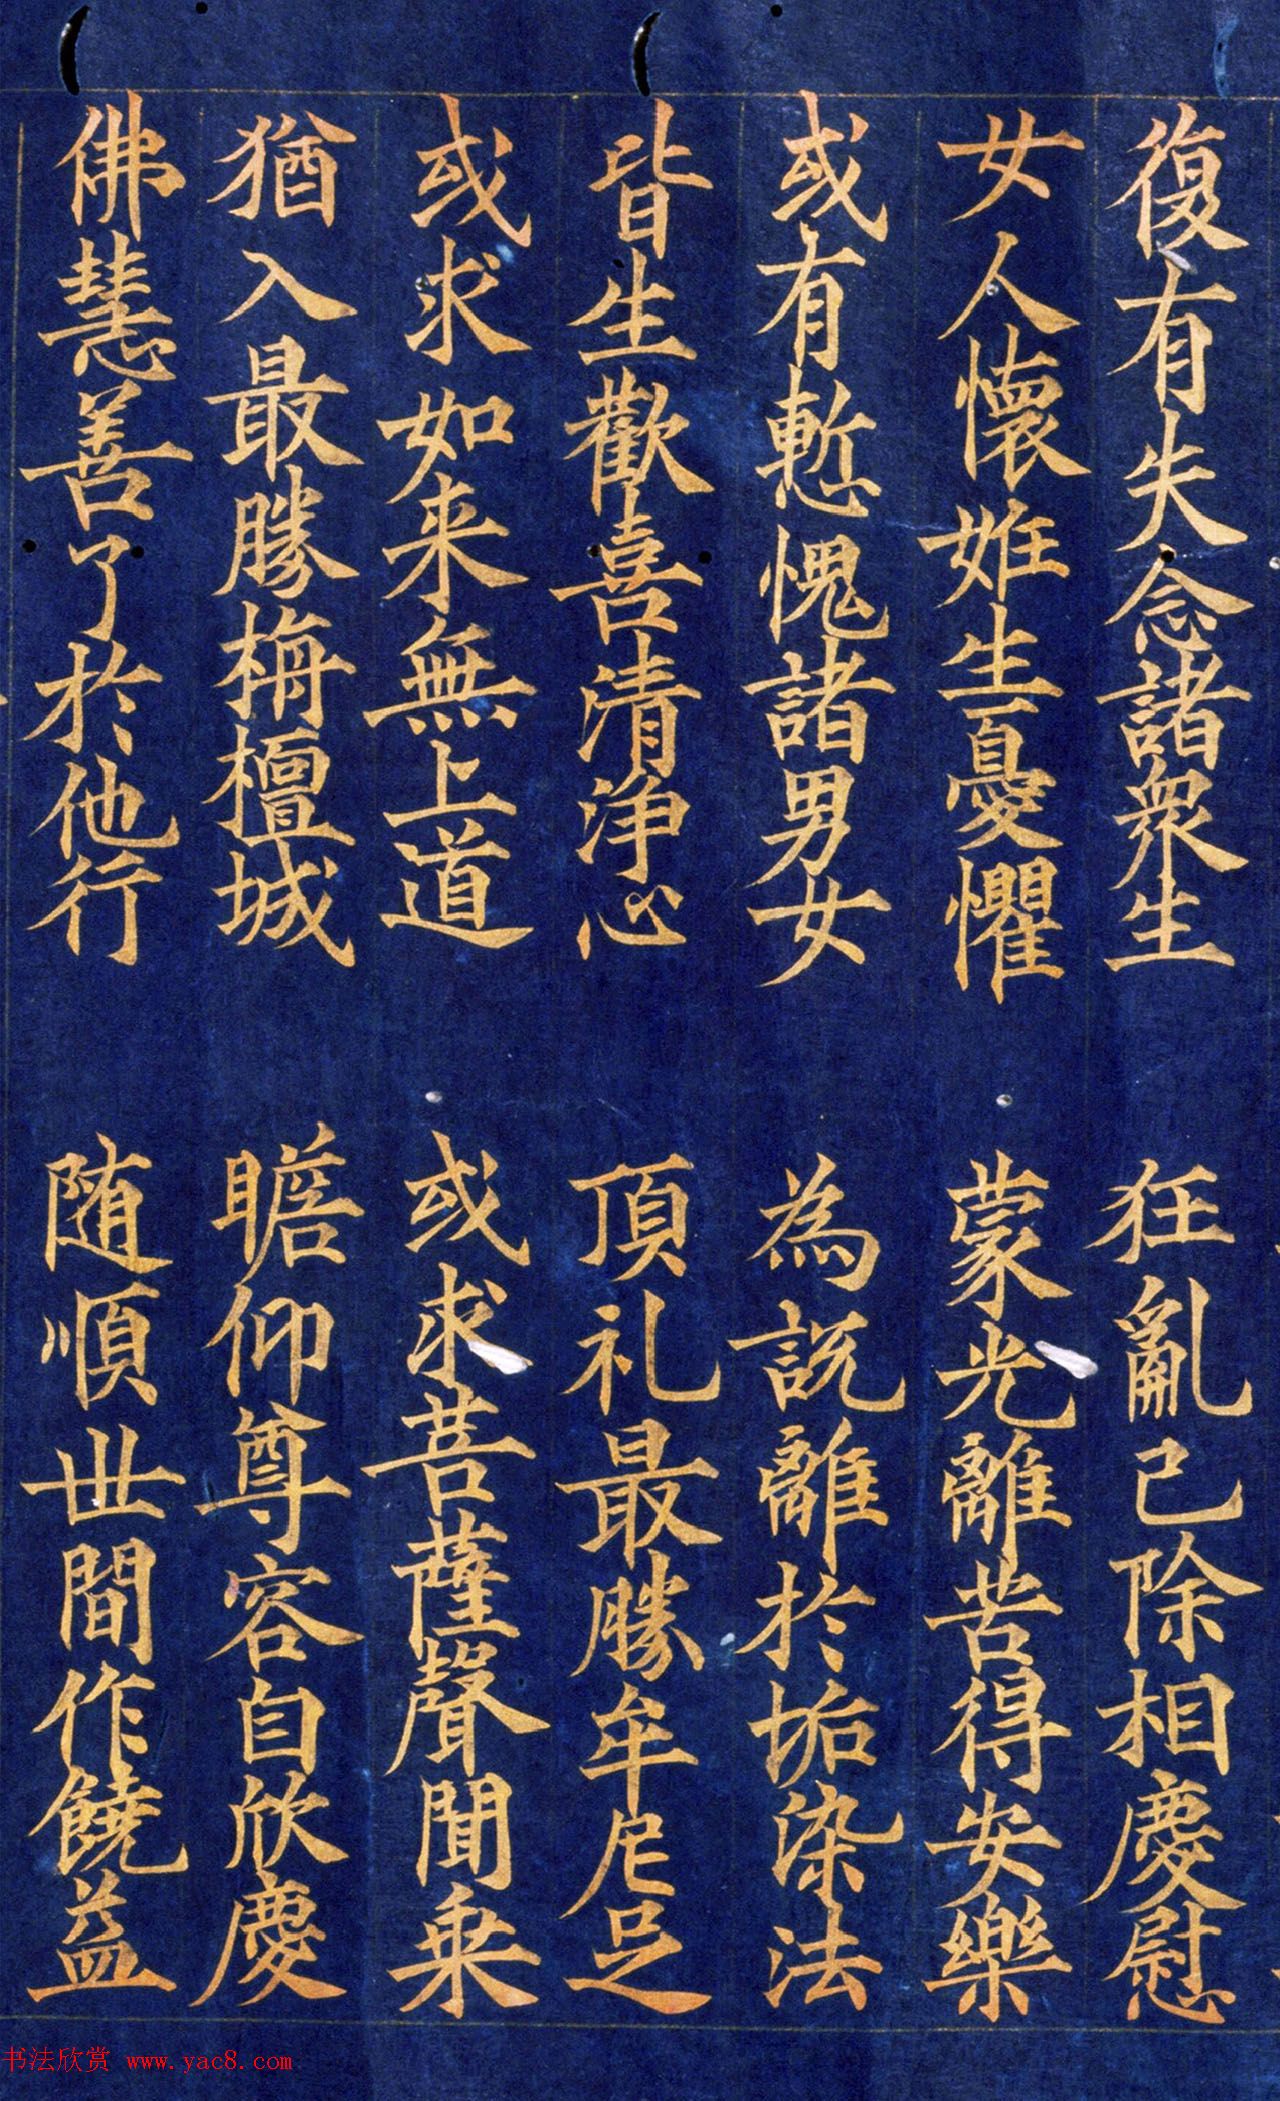 復有失念諸衆生　狂亂已除相慶慰
女人懷妊生憂懼　蒙光離苦得安樂
或有慙愧諸男女　為説離於垢染法
皆生歡喜清淨心　頂礼最勝牟尼足
或求如来無上道　或求菩薩聲聞乗
猶入最勝栴檀城　瞻仰尊容自欣慶
佛慧善了於他行　随順世間作饒益
书法欣赏 www.yac8.com